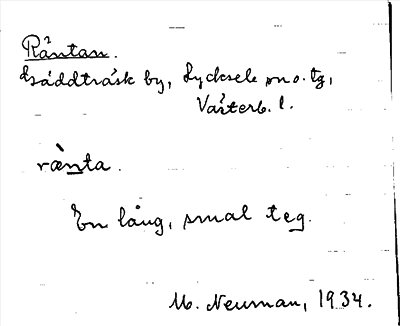 Räntan.
Gäddträsk by, Lycksele sn o. tg,
Västerb. l.
rænta.
En lång, smal teg.
M. Neuman, 1934.